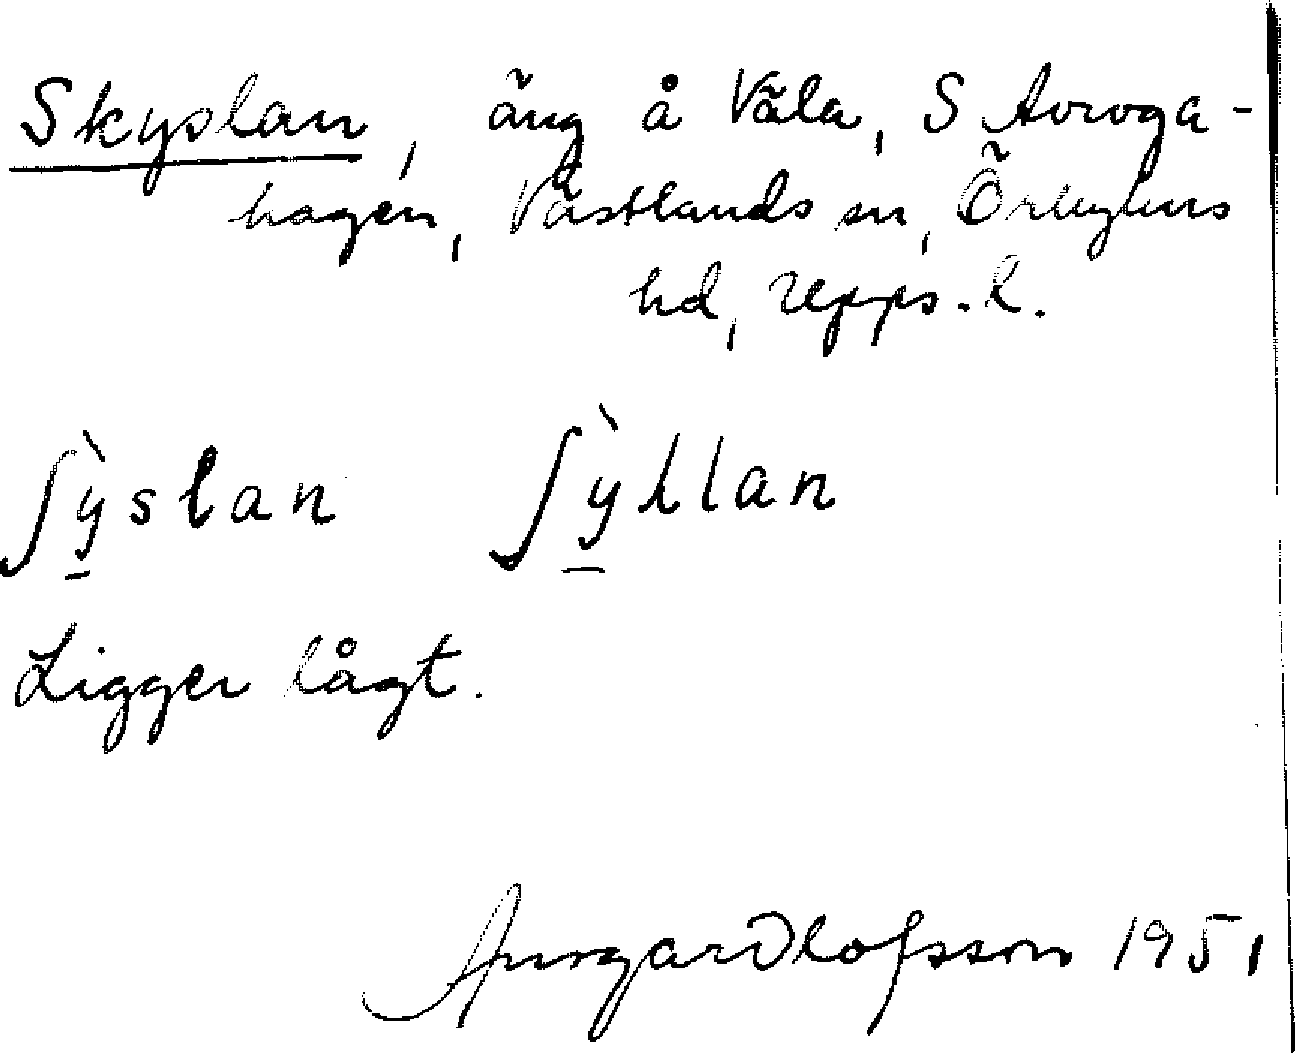 Skyslan, äng å Väla, S Avroga-
hagen, Västlands sn, Örbyhus
hd, Upps. l.
ʃỳslan ʃỳllan
Ligger lågt.
Ansgar Olofsson 1951